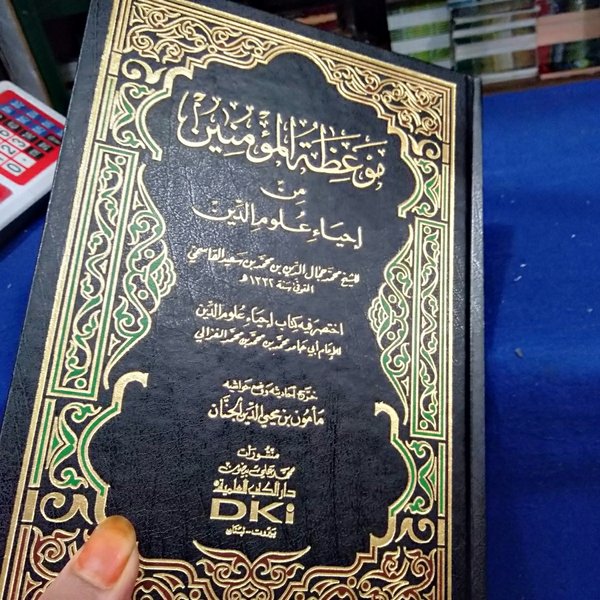 موعظة المؤمنين
من
إحياء علوم الدين
للشيخ محمد جمال الدين بن محمد بن سعيد القاسمي
المتوفى سنة ١٣٣٢ هـ
اختصر فيه كتاب إحياء علوم الدين
للإمام أبي حامد محمد بن محمد بن محمد الغزالي
خرج أحاديثه ووضع حواشيه
مأمون بن محيي الدين الجنان
منشورات
محمد علي بيضون
دار الكتب العلمية
DKi
بيروت - لبنان